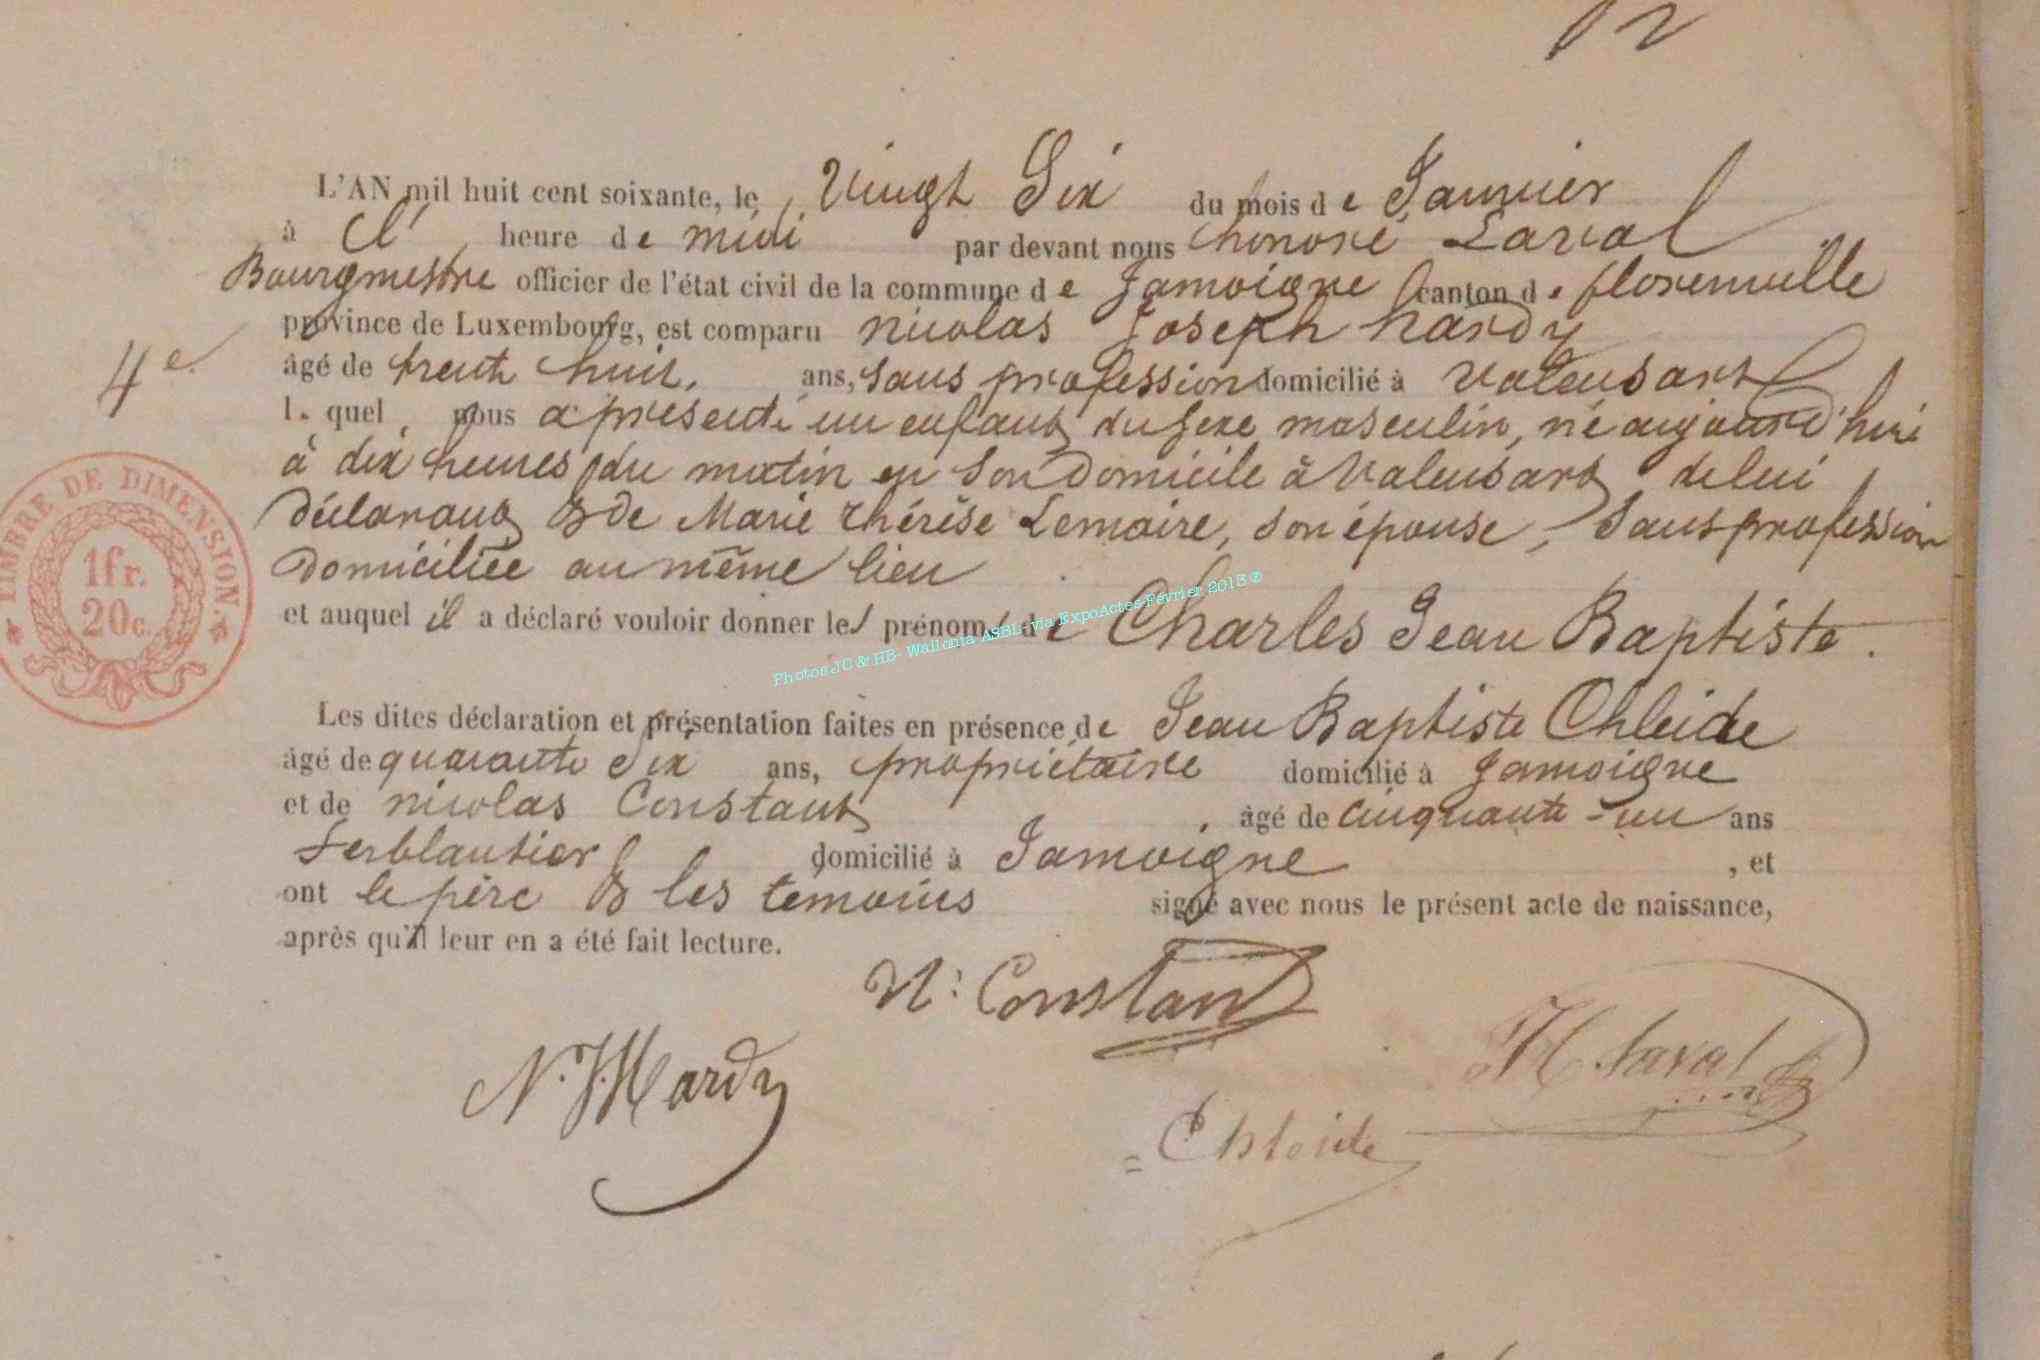 12
L'AN mil huit cent soixante, le Vingt Six du mois de Janvier
à l' heure de midi par devant nous honoré Laval
Bourgmestre officier de l'état civil de la commune de Jamoigne canton de florenville
province de Luxembourg, est comparu nicolas Joseph hardy
4e
âgé de trente huit, ans, sans profession domicilié à valensart
lequel nous a présenté un enfant du sexe masculin, né aujourd'hui
à dix heures du matin en son domicile à Valensart de lui
déclarant & de Marie thérèse Lemaire, son épouse, sans profession
domiciliée au même lieu
et auquel il a déclaré vouloir donner les prénoms de Charles Jean Baptiste.
Les dites déclaration et présentation faites en présence de Jean Baptiste Chleide
âgé de quarante six ans, propriétaire domicilié à Jamoigne
et de nicolas Constant, âgé de cinquante-un ans
ferblantier domicilié à Jamoigne, et
ont le père & les témoins signé avec nous le présent acte de naissance,
après qu'il leur en a été fait lecture.
N: Constant
N. J. Hardy
H. Laval
Chleide
TIMBRE DE DIMENSION.
1fr.
20c.
Photos JC & HB- Wallonia ASBL- via ExpoActes-Février 2018 ©